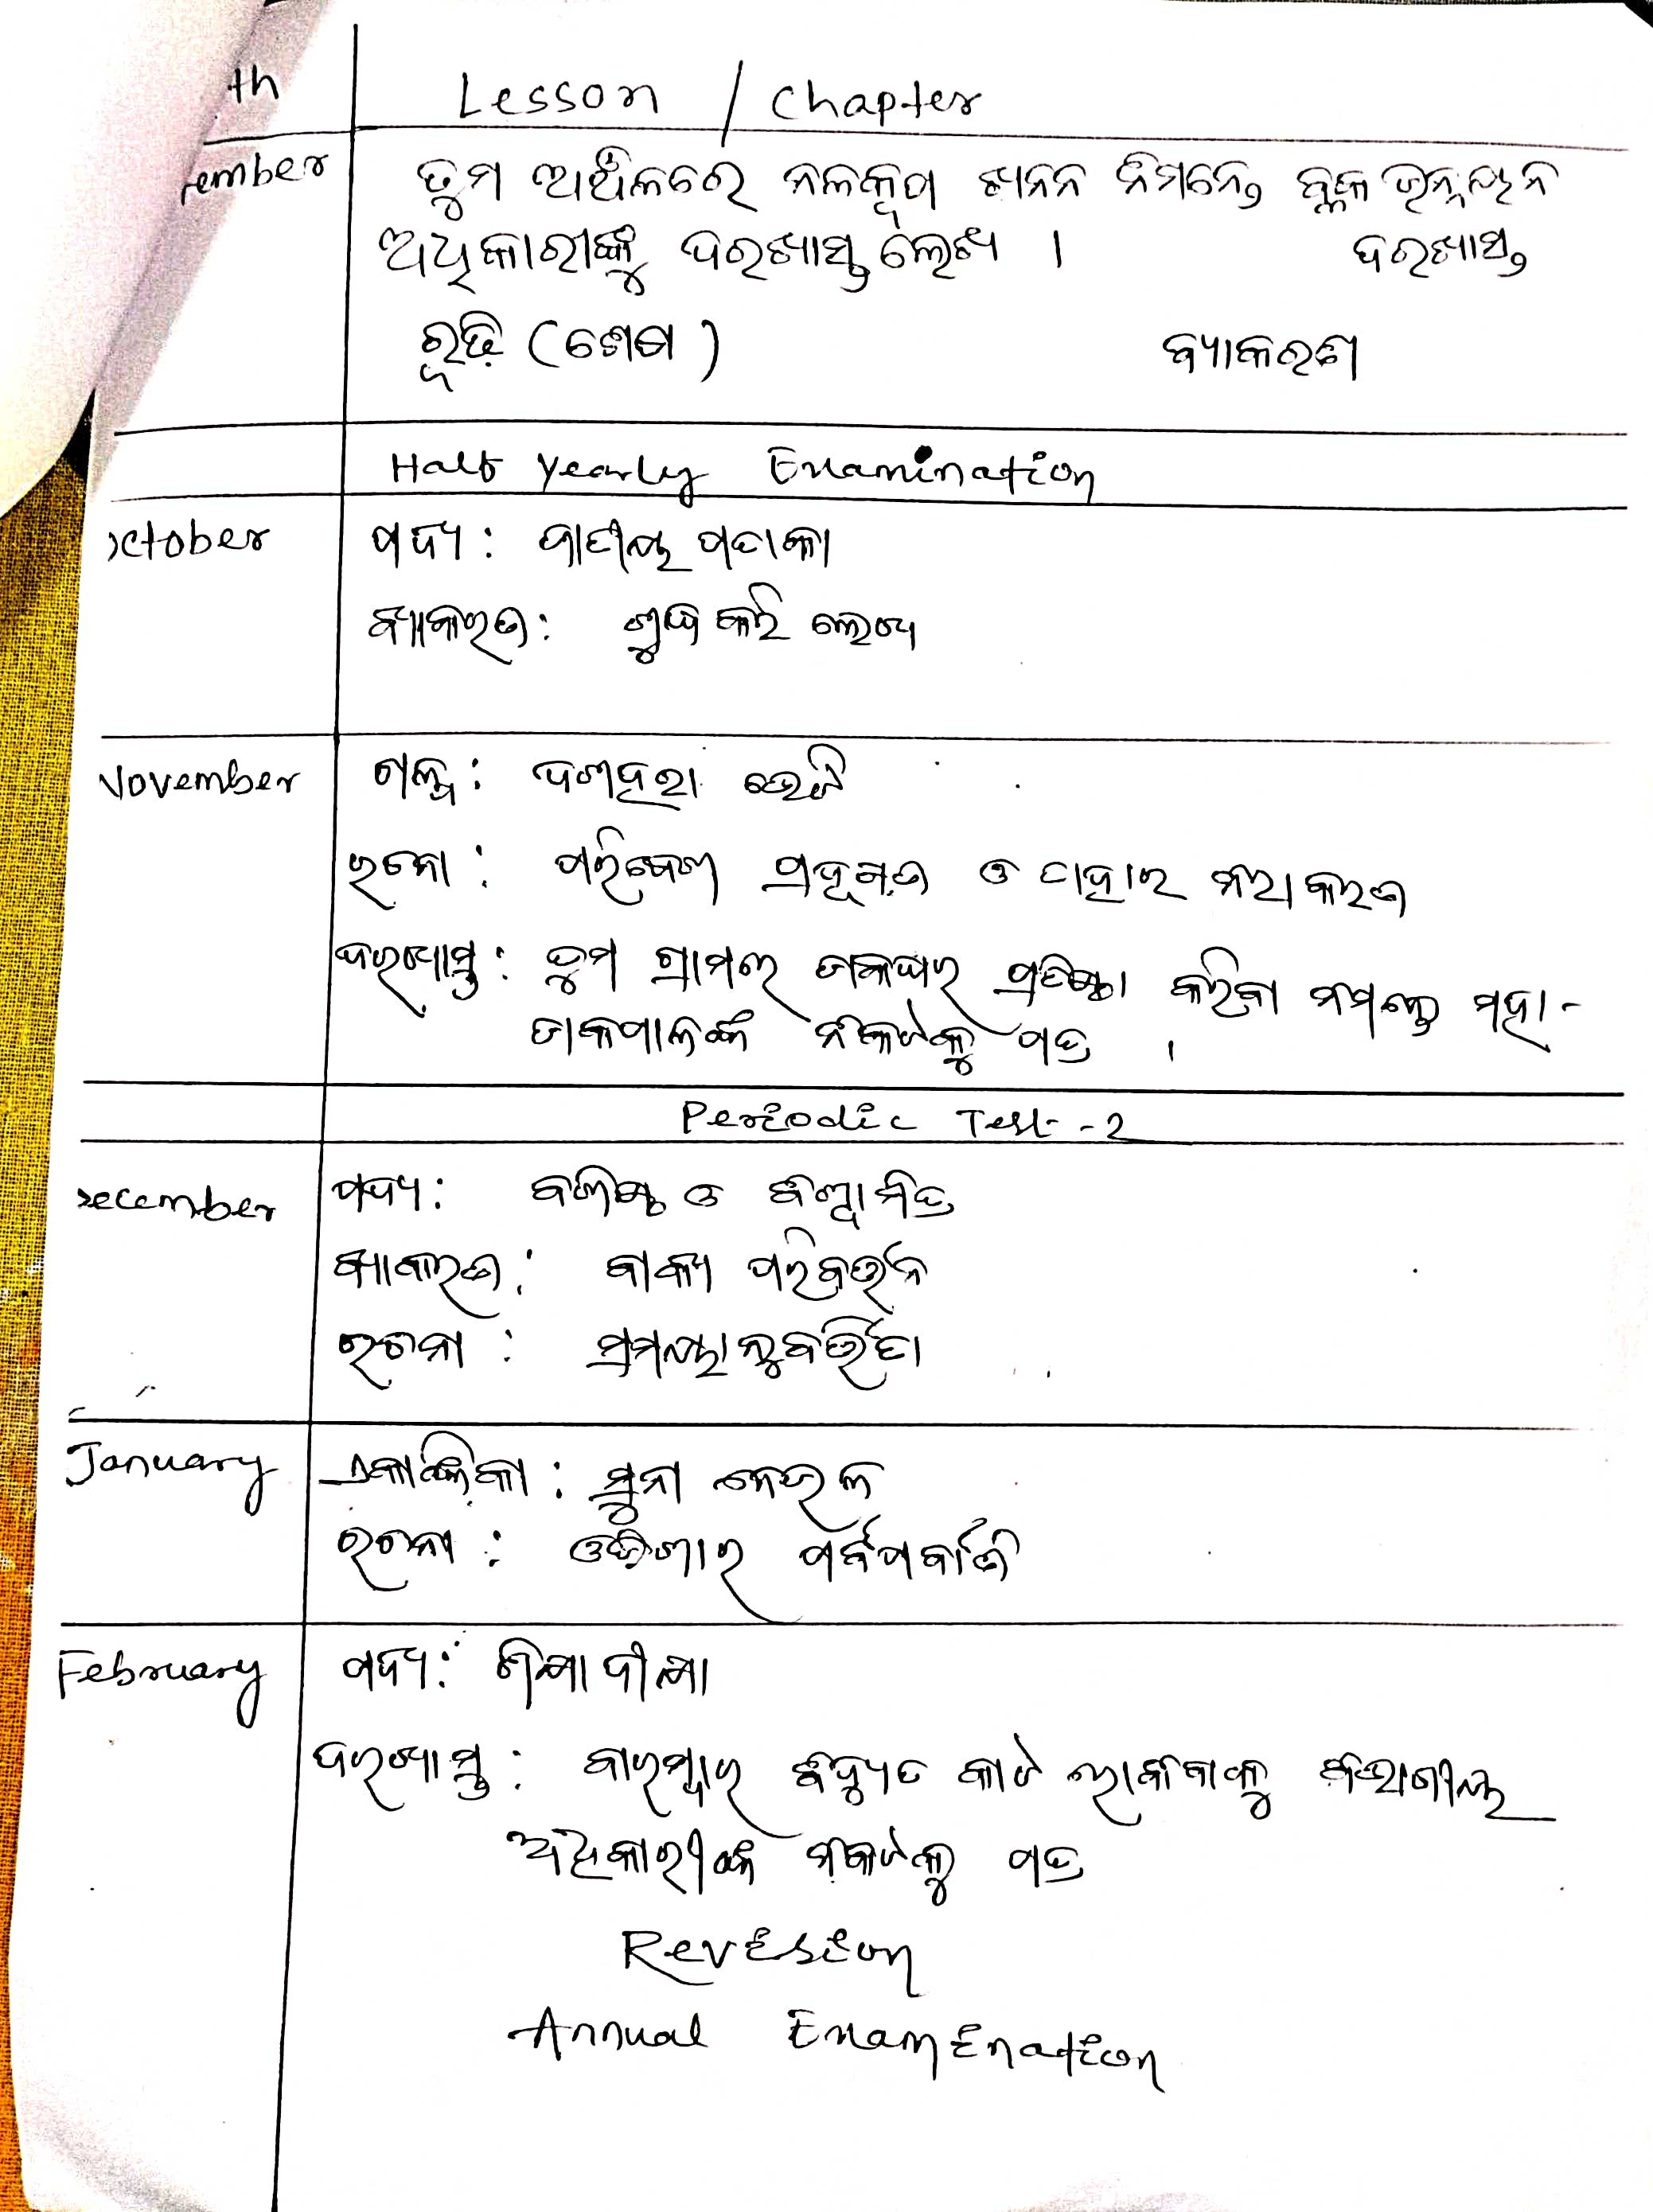 th Lesson / Chapter
ember ତୁମ ଅଞ୍ଚଳରେ ନଳକୂପ ଖନନ ନିମନ୍ତେ ବ୍ଲକ ଉନ୍ନୟନ
ଅଧିକାରୀଙ୍କୁ ଦରଖାସ୍ତ ଲେଖ । ଦରଖାସ୍ତ
ରୂଢ଼ି (ଶେଷ) ବ୍ୟାକରଣ
Half yearly Examination
october ପଦ୍ୟ : ଜାତୀୟ ପତାକା
ବ୍ୟାକରଣ : ଶୁଦ୍ଧ କରି ଲେଖ
November ଗଳ୍ପ : ଦଶହରା ଭେଟି
ରଚନା : ପରିବେଶ ପ୍ରଦୂଷଣ ଓ ତାହାର ନିରାକରଣ
ଦରଖାସ୍ତ : ତୁମ ଗ୍ରାମରେ ଡାକଘର ପ୍ରତିଷ୍ଠା କରିବା ନିମନ୍ତେ ମହା-
ଡାକପାଳଙ୍କ ନିକଟକୁ ପତ୍ର ।
Periodic Test - 2
December ପଦ୍ୟ : ବଶିଷ୍ଠ ଓ ବିଶ୍ୱାମିତ୍ର
ବ୍ୟାକରଣ : ବାକ୍ୟ ପରିବର୍ତ୍ତନ
ରଚନା : ସମୟାନୁବର୍ତ୍ତିତା
January ଏକାଙ୍କିକା : ସୁନା ଦେଉଳ
ରଚନା : ଓଡ଼ିଶାର ପର୍ବପର୍ବାଣି
February ପଦ୍ୟ : ଶିକ୍ଷା ଦୀକ୍ଷା
ଦରଖାସ୍ତ : ବାରମ୍ବାର ବିଦ୍ୟୁତ କାଟ ରୋକିବାକୁ ବିଭାଗୀୟ
ଅଧିକାରୀଙ୍କ ନିକଟକୁ ପତ୍ର
Revision
Annual Examination